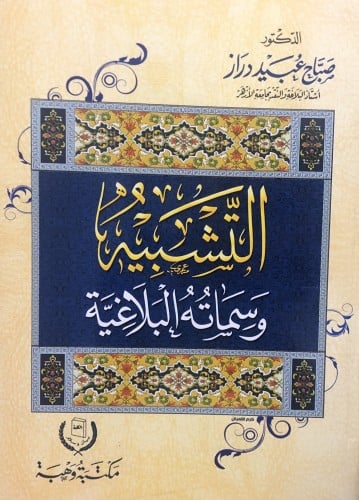 الدكتور
صباح عبيد دراز
أستاذ البلاغة والنقد بجامعة الأزهر
التشبيه
وسماته البلاغية
مكتبة وهبة